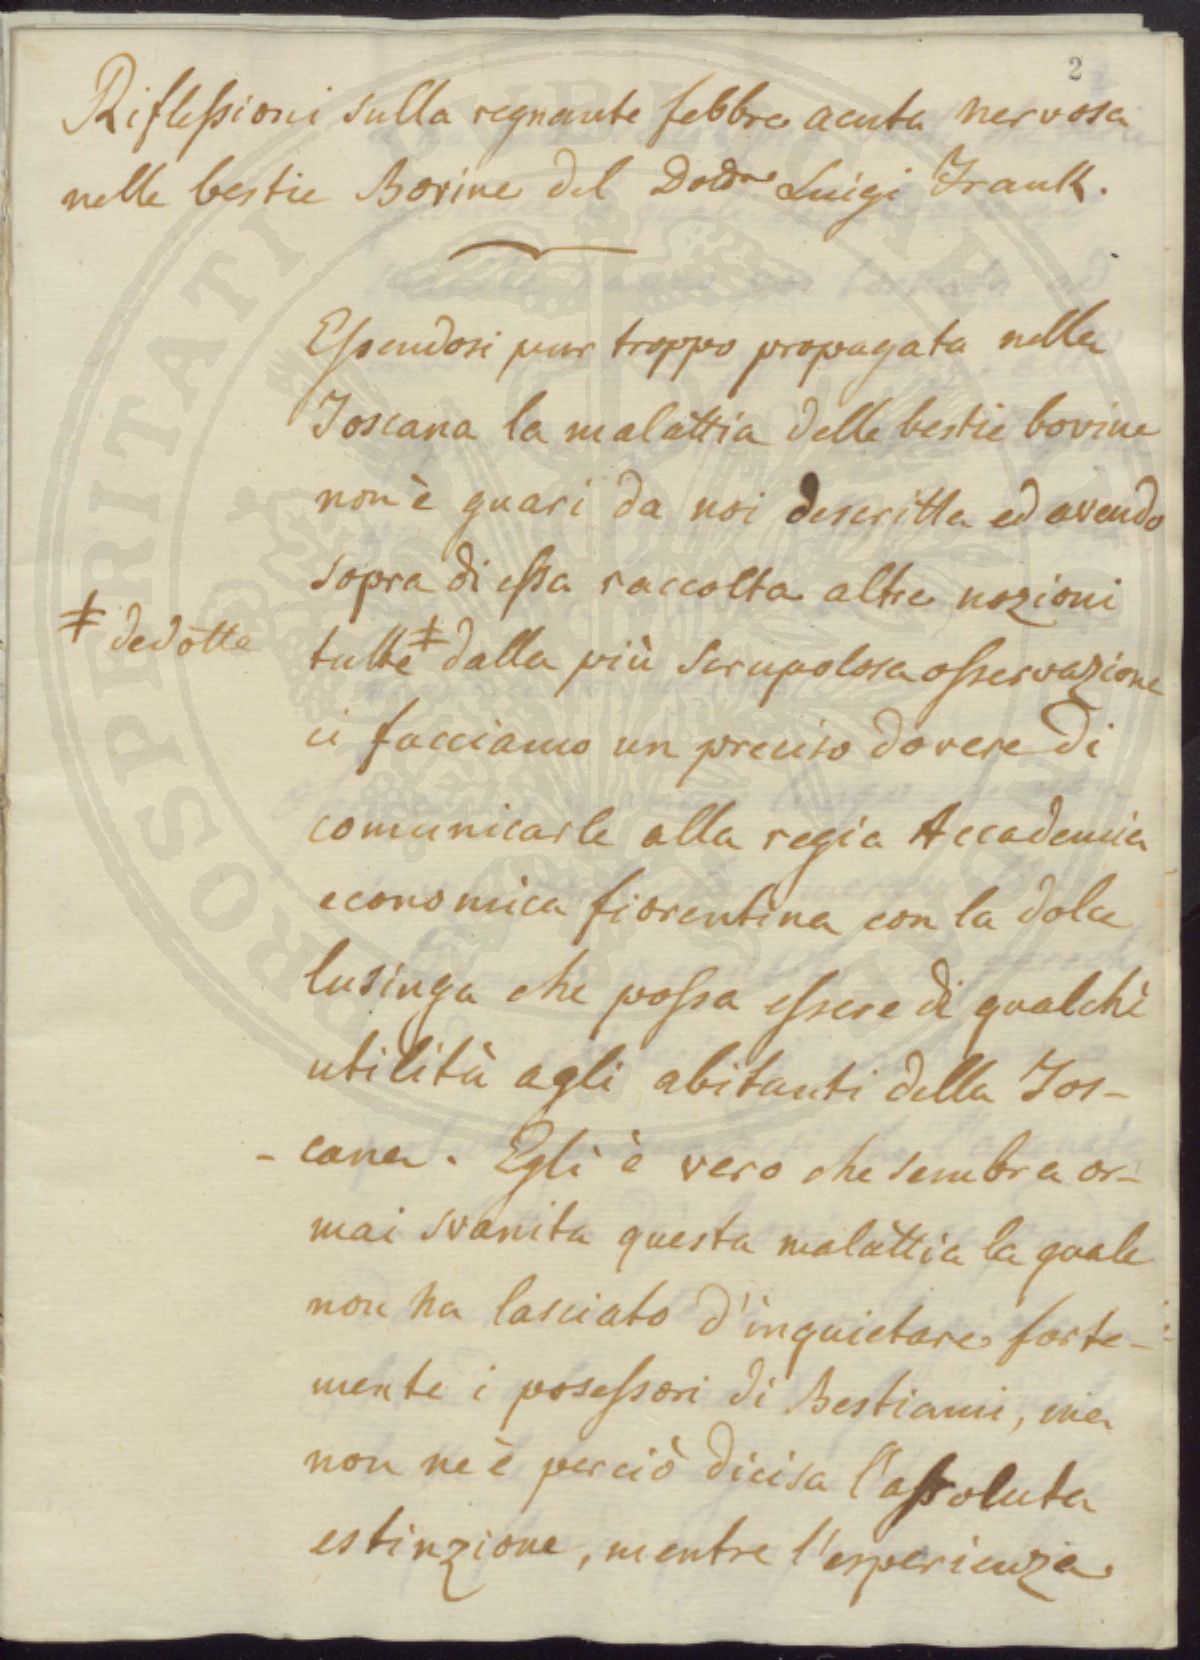 2
Riflessioni sulla regnante febbre acuta nervosa
nelle bestie Bovine del Luigi Frank.
Essendosi pur troppo propagata nella
Toscana la malattia delle bestie bovine
non è guari da noi descritta ed avendo
sopra di essa raccolta altre nozioni
‡ dedotte
tutte ‡ dalla più scrupolosa osservazione
ci facciamo un preciso dovere di
comunicarle alla regia Accademia
economica fiorentina con la dolce
lusinga che possa essere di qualche
utilità agli abitanti della Tos-
- cana. Egli è vero che sembra or-
mai svanita questa malattia la quale
non ha lasciato d'inquietare forte-
mente i posessori di Bestiami, ma
non ne è perciò dicisa l'assoluta
estinzione, mentre l'esperienza
PROSPERITATI PUBLICAE